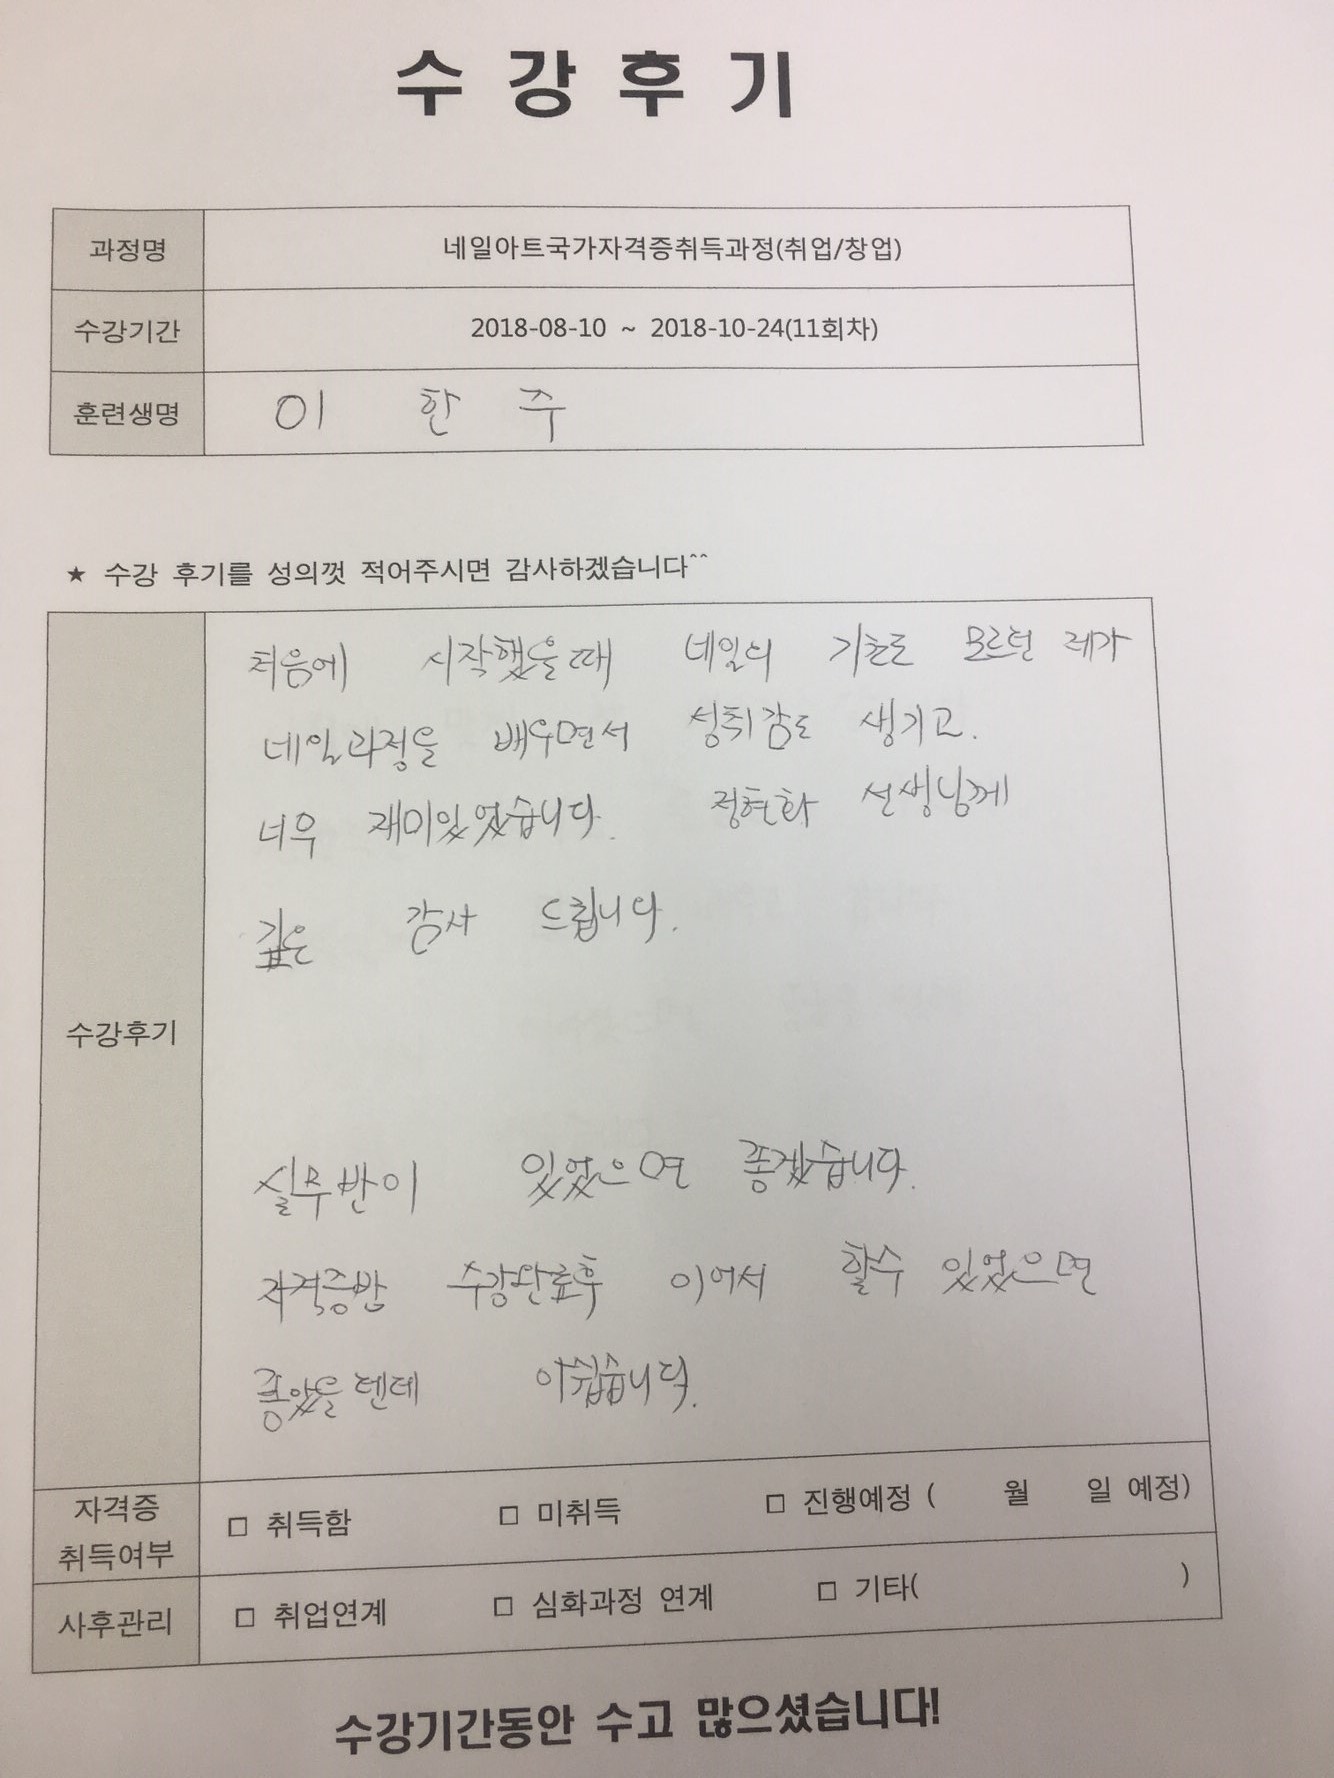 수강후기
과정명 네일아트국가자격증취득과정(취업/창업)
수강기간 2018-08-10 ~ 2018-10-24(11회차)
훈련생명 이 한 주
★ 수강 후기를 성의껏 적어주시면 감사하겠습니다^^
수강후기
처음에 시작했을때 네일의 기초도 모르던 제가
네일과정을 배우면서 성취감도 생기고.
너무 재미있었습니다. 정현화 선생님께
깊은 감사 드립니다.
실무반이 있었으면 좋겠습니다.
자격증반 수강완료후 이어서 할수 있었으면
좋았을텐데 아쉽습니다.
자격증 취득여부 □ 취득함 □ 미취득 □ 진행예정 ( 월 일 예정)
사후관리 □ 취업연계 □ 심화과정 연계 □ 기타( )
수강기간동안 수고 많으셨습니다!